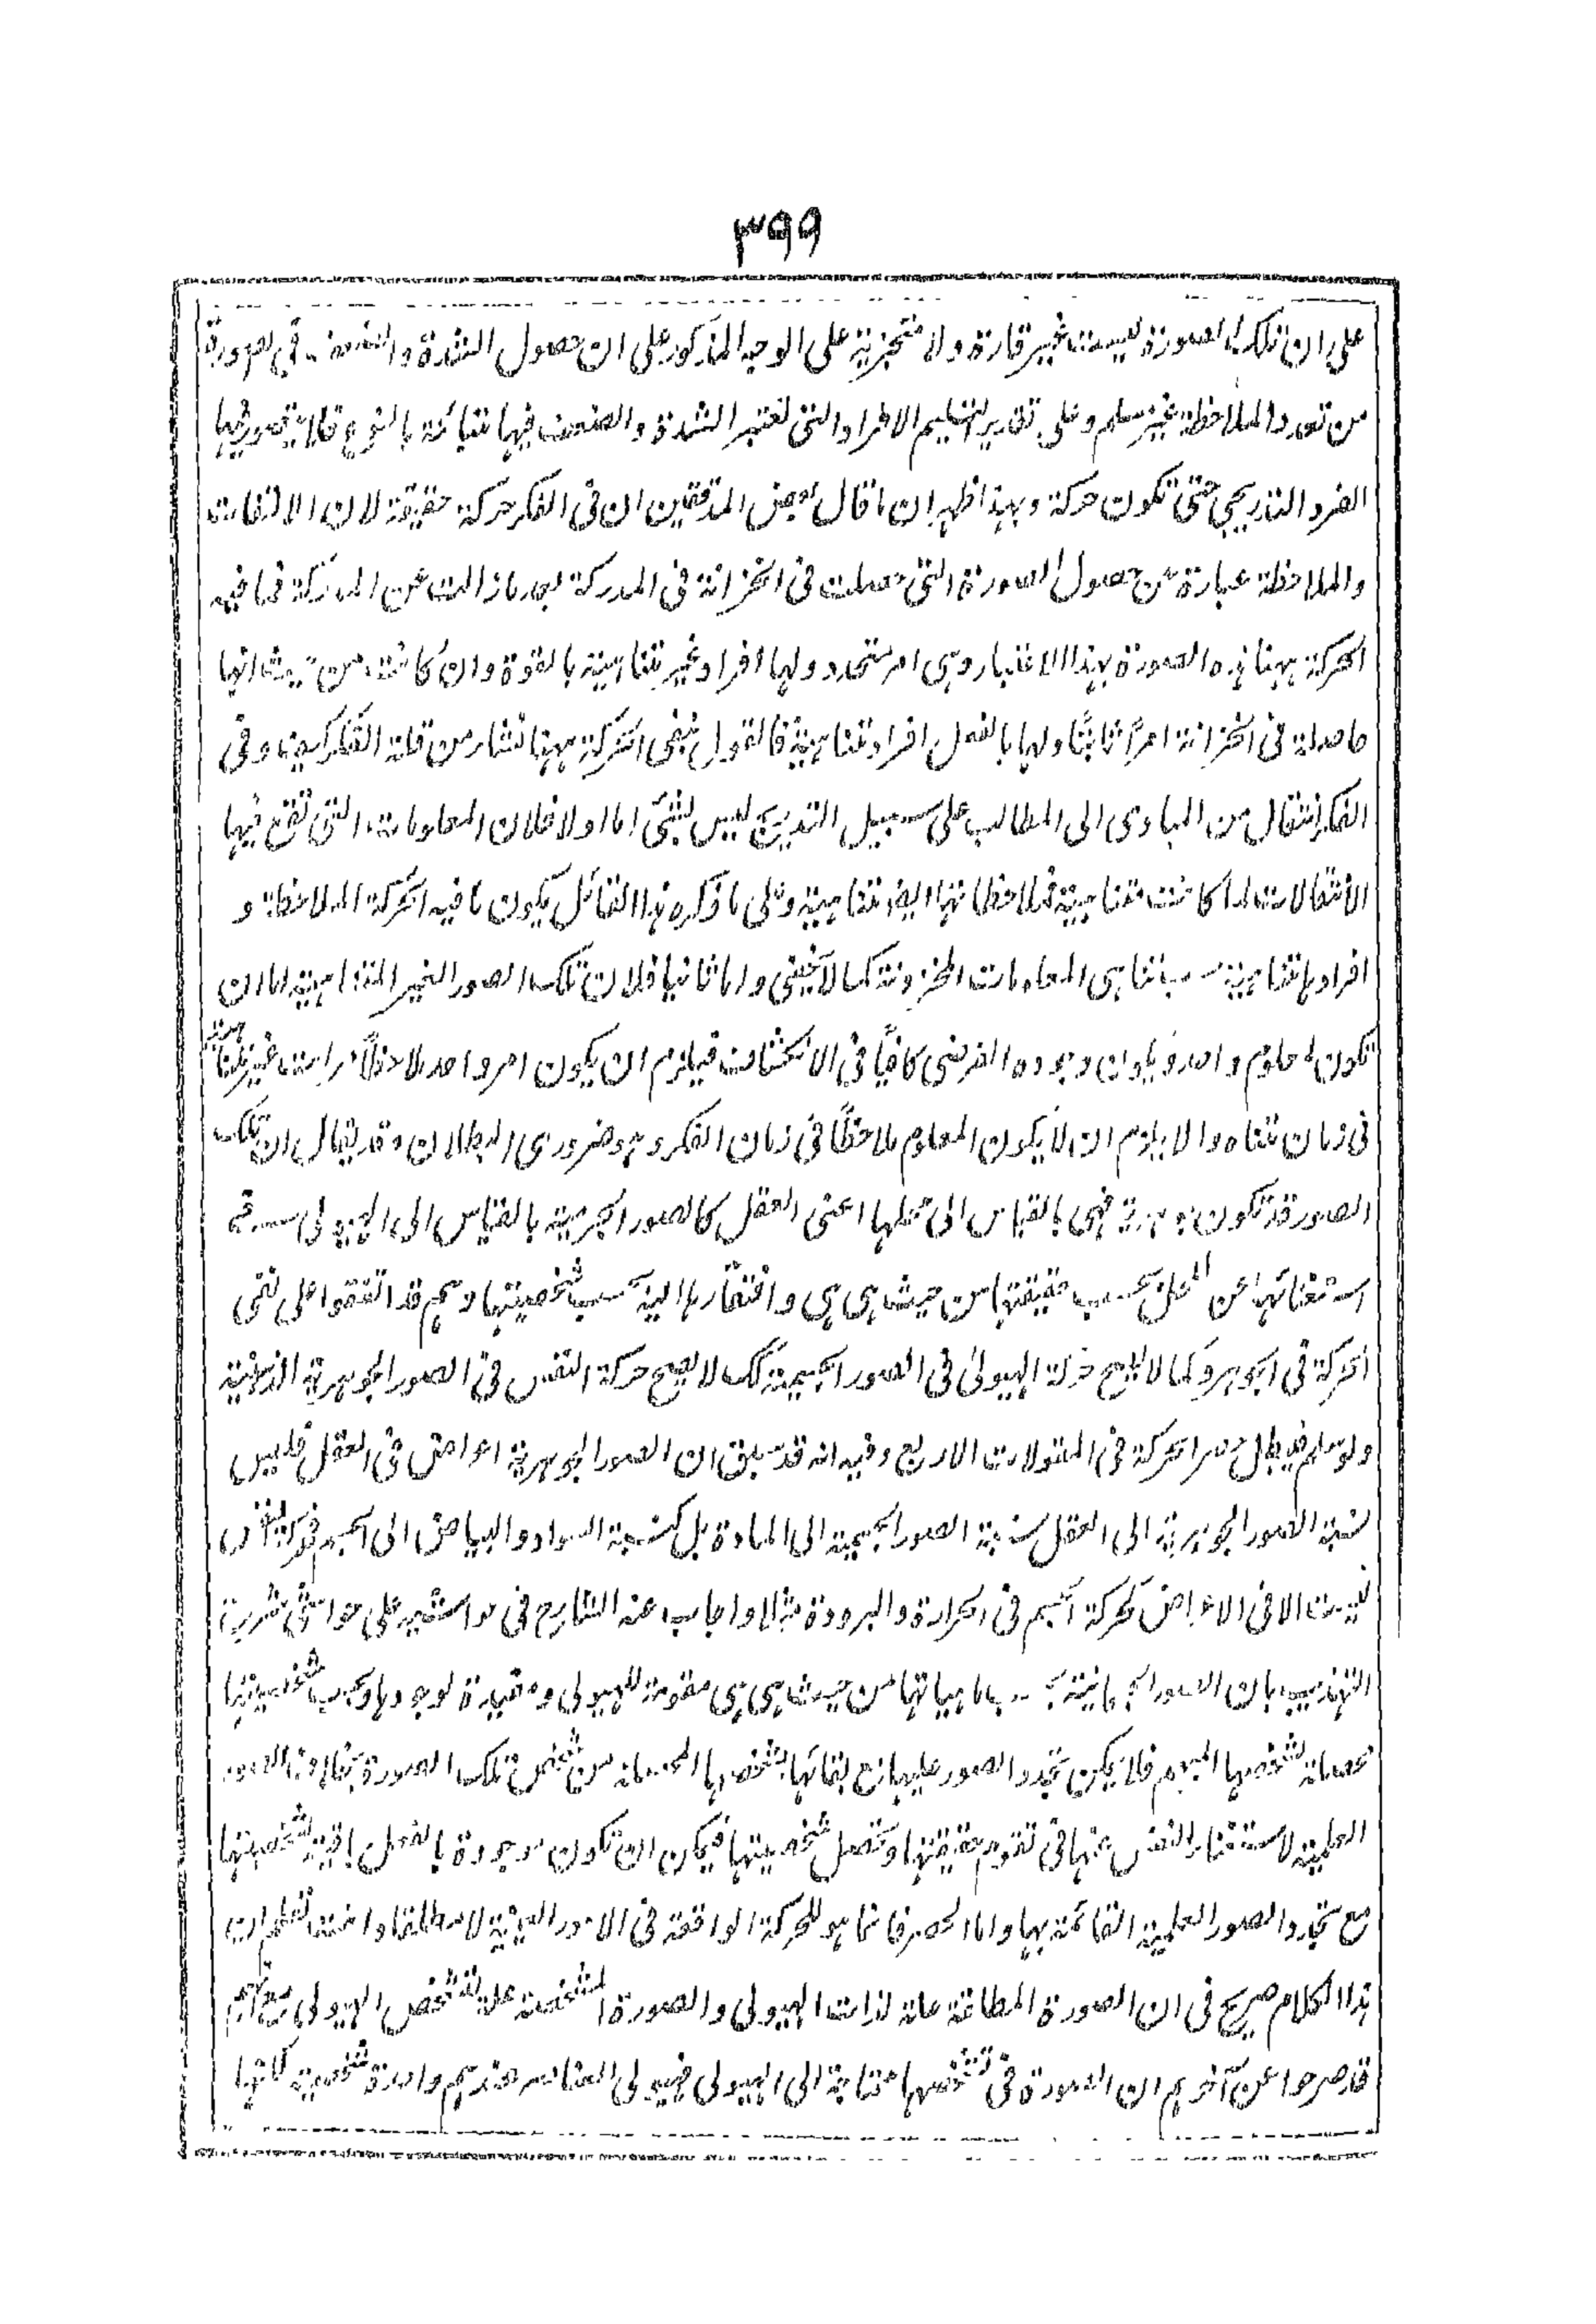 ٣٩٩
على ان تلك الصورة ليست غير قارة ولا متجزية على الوجه المذكور على ان حصول الشدة والضعف فى الصورة
من تعدد الملاحظة غير مسلم وعلى تقدير التسليم الافراد التى تعتبر الشدة والضعف فيها متبائنة بالنوع فلا يتصور فيها
الفرد التدريجى حتى تكون حركة وبهذا ظهر ان ما قال بعض المدققين ان فى الفكر حركة حقيقة لان الالتفات
والملاحظة عبارة عن حصول الصورة التى حصلت فى الخزانة فى المدركة بعد ما زالت عن المدركة فما فيه
الحركة ههنا هذه الصورة بهذا الاعتبار وهى امر متجدد ولها افراد غير متناهية بالقوة وان كانت من حيث انها
حاصلة فى الخزانة امرًا ثابتًا ولها بالفعل افراد متناهية فالقول بنفى الحركة ههنا نشاء من قلة التفكر كيف وفى
الفكر انتقال من المبادى الى المطالب على سبيل التدريج ليس بشئ اما اولا فلان المعلومات التى تقع فيها
الانتقالات لما كانت متناهية فملاحظاتها ايضا متناهية وعلى ما ذكره هذا القائل يكون ما فيه الحركة الملاحظة و
افرادها متناهية حسب تناهى المعلومات المخزونة كما لا يخفى واما ثانيا فلان تلك الصور الغير المتناهية اما ان
تكون لمعلوم واحد ويكون وجوده الفرضى كافيًا فى الانكشاف فيلزم ان يكون امر واحد ملاحظًا مرات غير متناهية
فى زمان متناه والا يلزم ان لا يكون المعلوم ملاحظًا فى زمان الفكر وهو ضرورى البطلان وقد يقال ان تلك
الصور قد تكون جوهرية فهى بالقياس الى محلها اعنى العقل كالصور الجرمية بالقياس الى الهيولى فى
استغنائها عن المحل بحسب حقيقتها من حيث هى هى وافتقارها اليه بحسب شخصيتها وهم قد اتفقوا على نفى
الحركة فى الجوهر وكما لا يصح حركة الهيولى فى الصور الجسمية كذلك لا يصح حركة النفس فى الصور الجوهرية الذهنية
ولو سلم فيبطل حصر الحركة فى المقولات الاربع وفيه انه قد سبق ان الصور الجوهرية اعراض فى العقل فليس
نسبة الصور الجوهرية الى العقل نسبة الصور الجسمية الى المادة بل كنسبة السواد والبياض الى الجسم فحركة النفس
ليست الا فى الاعراض كحركة الجسم فى الحرارة والبرودة مثلا واجاب عنه الشارح فى حواشيه على حواشى شرح
التهذيب بان الصور الجرمانية بحسب ماهياتها من حيث هى هى مقومة للهيولى ومفيدة لوجودها وبحسب شخصيتها
محصلة لشخصها المبهم فلا يمكن تجدد الصور عليها مع بقائها بشخصها المحصلة من شخص تلك الصورة بخلاف الصور
العلمية لاستغناء النفس عنها فى تقوم حقيقتها وتحصل شخصيتها فيمكن ان تكون موجودة بالفعل باقية بشخصيتها
مع تجدد الصور العلمية القائمة بها واما الحصر فانما هو للحركة الواقعة فى الامور العينية لا مطلقا وانت تعلم ان
هذا الكلام صريح فى ان الصورة المطلقة علة لذات الهيولى والصورة المشخصة علة لتشخص الهيولى مع انهم
قد صرحوا عن آخرهم ان الصورة فى تشخصها محتاجة الى الهيولى فهيولى العناصر عندهم واحدة شخصية كانها